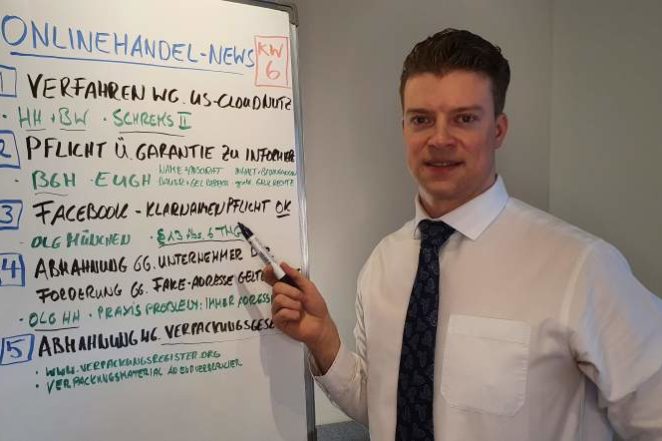 ONLINEHANDEL-NEWS
KW
6
1 VERFAHREN WG. US-CLOUDNUTZ
· HH + BW · SCHREMS II
2 PFLICHT Ü. GARANTIE ZU INFORMIER
· BGH · EUGH
3 FACEBOOK - KLARNAMENPFLICHT OK
· OLG MÜNCHEN · § 13 Abs. 6 TMG
4 ABMAHNUNG GG. UNTERNEHMER
FORDERUNG GG. FAKE-ADRESSE GELTE
· OLG HH · PRAXIS PROBLEM: IMMER ADRESS
5 ABMAHNUNG WG. VERPACKUNGSGESE
· WWW.VERPACKUNGSREGISTER.ORG
· VERPACKUNGSMATERIAL